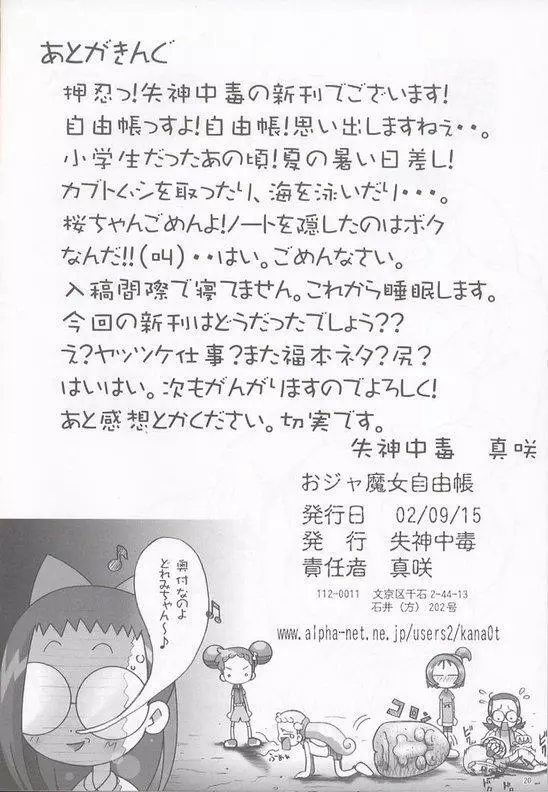 あとがきんぐ
押忍っ!失神中毒の新刊でございます!
自由帳っすよ!自由帳!思い出しますねぇ・・。
小学生だったあの頃!夏の暑い日差し!
カブトムシを取ったり、海を泳いだり・・・。
桜ちゃんごめんよ!ノートを隠したのはボク
なんだ!!(叫)・・はい。ごめんなさい。
入稿間際で寝てません。これから睡眠します。
今回の新刊はどうだったでしょう??
え?ヤッツケ仕事?また福本ネタ?尻?
はいはい。次もがんがりますのでよろしく!
あと感想とかください。切実です。
失神中毒 真咲
おジャ魔女自由帳
発行日 02/09/15
発行 失神中毒
責任者 真咲
112-0011 文京区千石2-44-13
石井(方)202号
www.alpha-net.ne.jp/users2/kana0t
奥付なのよ
どれみちゃん〜♪
コロン
20